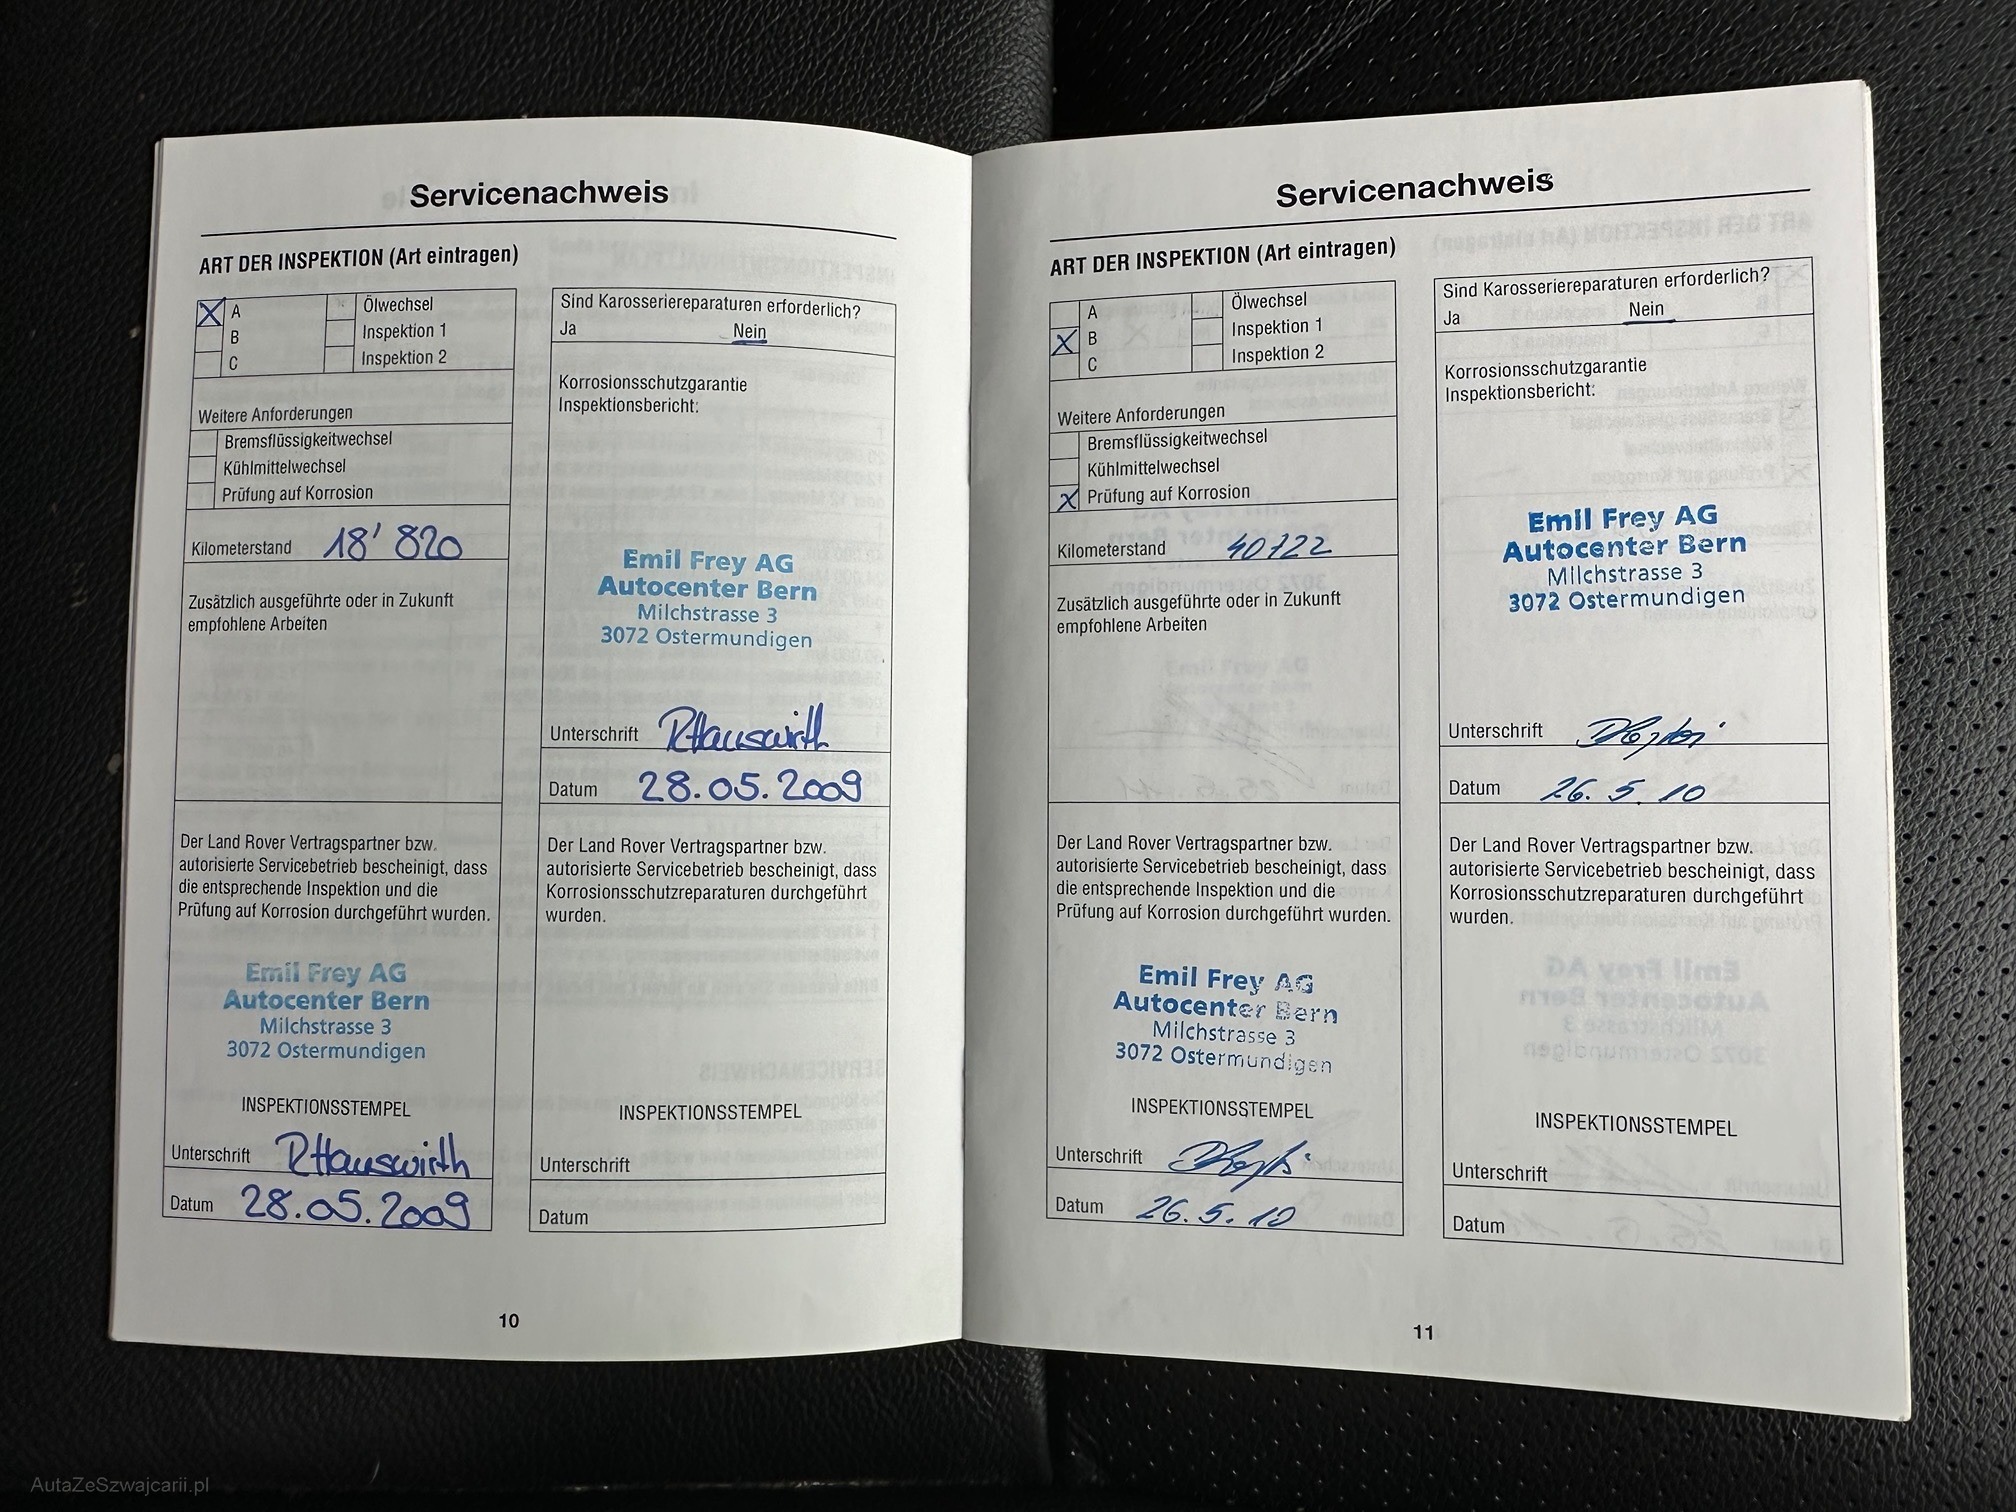 Servicenachweis
ART DER INSPEKTION (Art eintragen)
X A
B
C
Ölwechsel
Inspektion 1
Inspektion 2
Weitere Anforderungen
Bremsflüssigkeitwechsel
Kühlmittelwechsel
Prüfung auf Korrosion
Kilometerstand 18' 820
Zusätzlich ausgeführte oder in Zukunft
empfohlene Arbeiten
Der Land Rover Vertragspartner bzw.
autorisierte Servicebetrieb bescheinigt, dass
die entsprechende Inspektion und die
Prüfung auf Korrosion durchgeführt wurden.
Emil Frey AG
Autocenter Bern
Milchstrasse 3
3072 Ostermundigen
INSPEKTIONSSTEMPEL
Unterschrift RHauswirth
Datum 28.05.2009
Sind Karosseriereparaturen erforderlich?
Ja Nein
Korrosionsschutzgarantie
Inspektionsbericht:
Emil Frey AG
Autocenter Bern
Milchstrasse 3
3072 Ostermundigen
Unterschrift RHauswirth
Datum 28.05.2009
Der Land Rover Vertragspartner bzw.
autorisierte Servicebetrieb bescheinigt, dass
Korrosionsschutzreparaturen durchgeführt
wurden.
INSPEKTIONSSTEMPEL
Unterschrift
Datum
10
Servicenachweis
ART DER INSPEKTION (Art eintragen)
A
X B
C
Ölwechsel
Inspektion 1
Inspektion 2
Weitere Anforderungen
Bremsflüssigkeitwechsel
Kühlmittelwechsel
X Prüfung auf Korrosion
Kilometerstand 40722
Zusätzlich ausgeführte oder in Zukunft
empfohlene Arbeiten
Der Land Rover Vertragspartner bzw.
autorisierte Servicebetrieb bescheinigt, dass
die entsprechende Inspektion und die
Prüfung auf Korrosion durchgeführt wurden.
Emil Frey AG
Autocenter Bern
Milchstrasse 3
3072 Ostermundigen
INSPEKTIONSSTEMPEL
Unterschrift
Datum 26.5.10
Sind Karosseriereparaturen erforderlich?
Ja Nein
Korrosionsschutzgarantie
Inspektionsbericht:
Emil Frey AG
Autocenter Bern
Milchstrasse 3
3072 Ostermundigen
Unterschrift
Datum 26.5.10
Der Land Rover Vertragspartner bzw.
autorisierte Servicebetrieb bescheinigt, dass
Korrosionsschutzreparaturen durchgeführt
wurden.
INSPEKTIONSSTEMPEL
Unterschrift
Datum
11
AutaZeSzwajcarii.pl